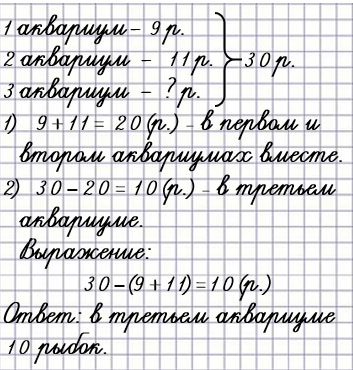 1 аквариум – 9 р.
2 аквариум – 11 р. 30 р.
3 аквариум – ? р.
1) 9 + 11 = 20 (р.) – в первом и
втором аквариумах вместе.
2) 30 – 20 = 10 (р.) – в третьем
аквариуме.
Выражение:
30 – (9 + 11) = 10 (р.)
Ответ: в третьем аквариуме
10 рыбок.